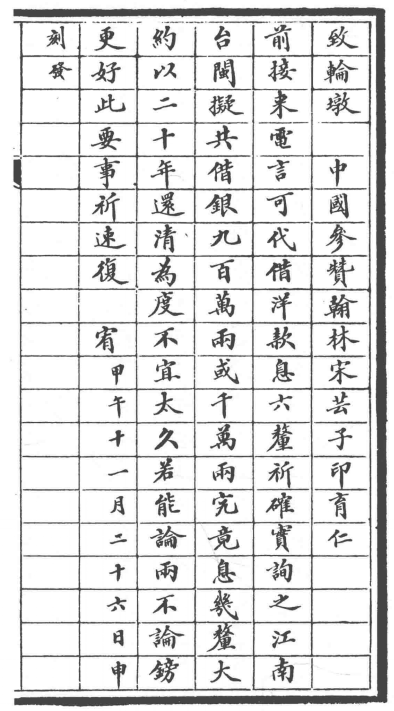 致輪墩　中國參贊翰林宋芸子印育仁
前接来電言可代借洋款息六釐祈確實詢之江南
台閩擬共借銀九百萬兩或千萬兩究竟息幾釐大
約以二十年還清為度不宜太久若能論兩不論鎊
更好此要事祈速復　宥甲午十一月二十六日申
刻發